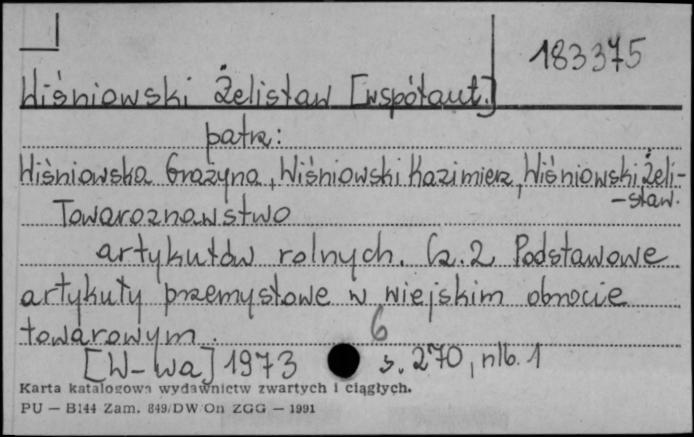 183375
Wiśniowski Żelisław [współaut.]
patrz:
Wiśniowska Grażyna, Wiśniowski Kazimierz, Wiśniowski Żeli-
-sław.
Towaroznawstwo
artykułów rolnych. Cz. 2 Podstawowe
artykuły przemysłowe w wiejskim obrocie
towarowym.
6
[W-wa] 1973 s. 270, nlb. 1
Karta katalogowa wydawnictw zwartych i ciągłych.
PU — B144 Zam. 849/DW/On ZGG — 1991